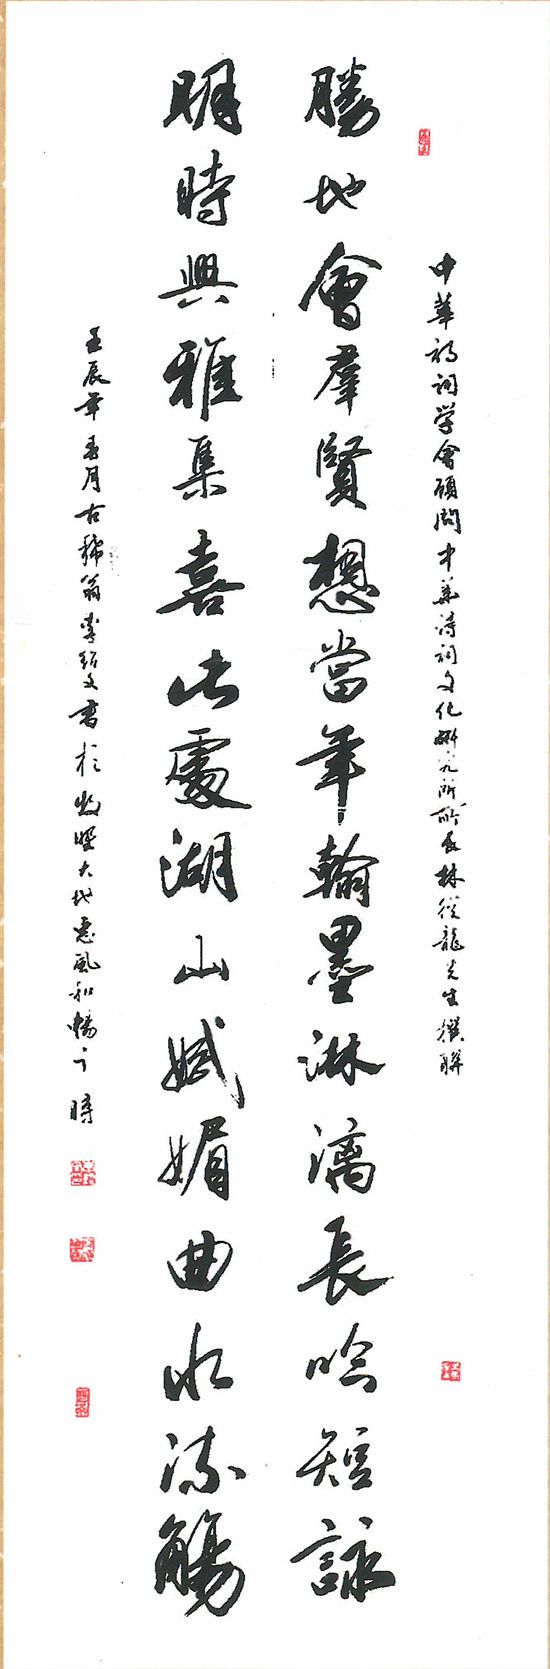 中華詩詞学會顧問中華詩词文化研究所所長林從龍先生撰聯
勝地會羣賢想當年翰墨淋漓長吟短詠
明時興雅集喜此處湖山娬媚曲水流觴
壬辰年春月古稀翁李紹文書於牧野大地惠風和暢之時